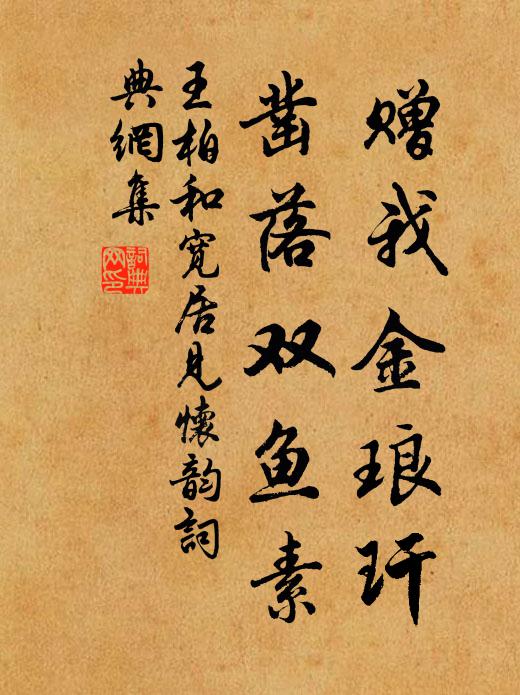 赠我金琅玕
凿落双鱼素
王柏和宽居见怀韵词
典網集
詞典網印